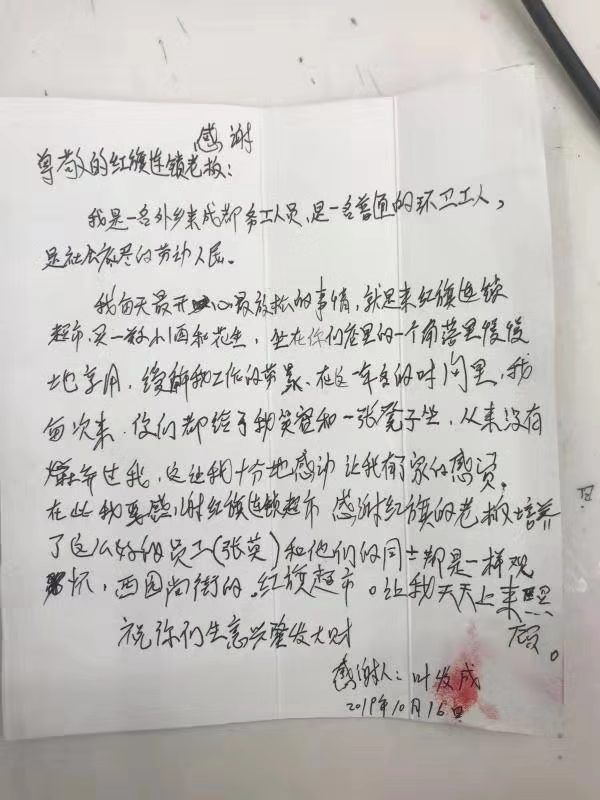 感谢
尊敬的红旗连锁老板：
我是一名外乡来成都务工人员，是一名普通的环卫工人，
是社会底层的劳动人民。
我每天最开心最放松的事情，就是来红旗连锁
超市，买一杯小酒和花生，坐在你们店里的一个角落里慢慢
地享用，缓解我工作的劳累、在这一年多的时间里，我
每次来．你们都给予我笑容和一张凳子坐，从来没有
嫌弃过我，这让我十分地感动 让我有家的感觉。
在此我要感谢红旗连锁超市 感谢红旗的老板培养
了这么好的员工(张英)和他们的同士都是一样观
怀，西园尚街的．红旗超市。让我天天上来照
顾。
祝你们生意兴隆发大财
感谢人：叶发成
2019年10月16日